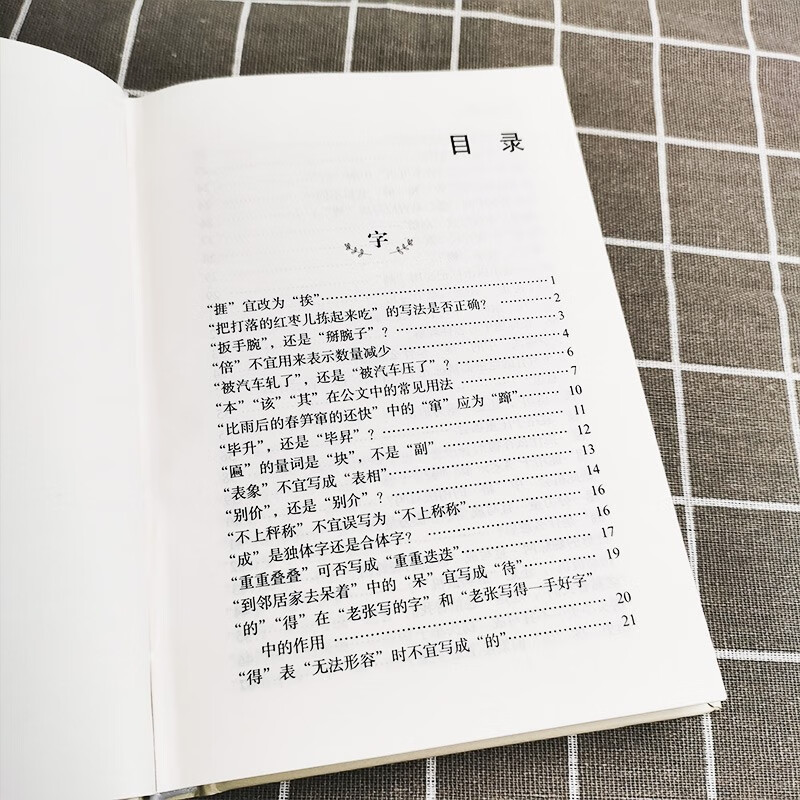 目 录
字
“捱”宜改为“挨”……………………1
“把打落的红枣儿拣起来吃”的写法是否正确？………2
“扳手腕”，还是“掰腕子”？……………………3
“倍”不宜用来表示数量减少……………………4
“被汽车轧了”，还是“被汽车压了”？……………………6
“本”“该”“其”在公文中的常见用法……………………7
“比雨后的春笋窜的还快”中的“窜”应为“蹿”…………10
“毕升”，还是“毕昇”？……………………11
“匾”的量词是“块”，不是“副”……………………12
“表象”不宜写成“表相”……………………13
“别价”，还是“别介”？……………………14
“不上秤称”不宜误写为“不上称称”……………………16
“成”是独体字还是合体字？……………………16
“重重叠叠”可否写成“重重迭迭”……………………17
“到邻居家去呆着”中的“呆”宜写成“待”……………………19
“的”“得”在“老张写的字”和“老张写得一手好字”
中的作用……………………20
“得”表“无法形容”时不宜写成“的”……………………21